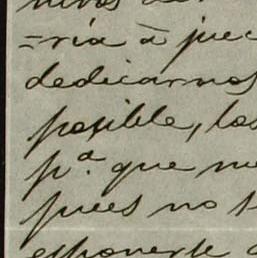 =ria à juec
dedicarnos
posible, las
p.ª que me
pues no t
esponerse a